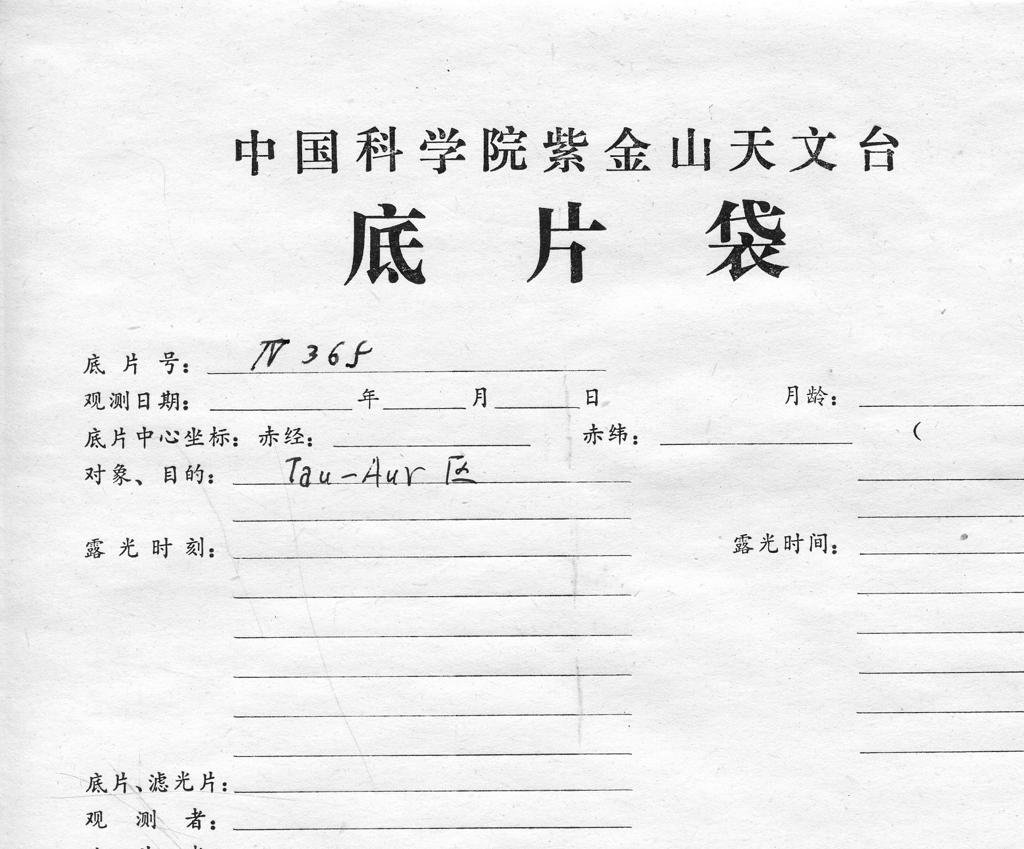 中国科学院紫金山天文台
底片袋
底片号： Ⅳ 365
观测日期： 年 月 日 月龄：
底片中心坐标：赤经： 赤纬： （
对象、目的： Tau-Aur 区
露光时刻： 露光时间：
底片、滤光片：
观测者：